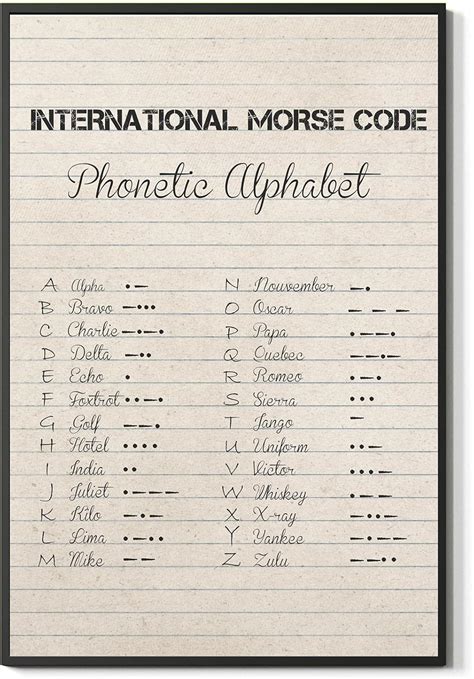 INTERNATIONAL MORSE CODE
Phonetic Alphabet
A Alpha •—
B Bravo —•••
C Charlie —•—•
D Delta —••
E Echo •
F Foxtrot ••—•
G Golf ——•
H Hotel ••••
I India ••
J Juliet •———
K Kilo —•—
L Lima •—••
M Mike ——
N Nouvember —•
O Oscar ———
P Papa •——•
Q Quebec ——•—
R Romeo •—•
S Sierra •••
T Tango —
U Uniform ••—
V Victor •••—
W Whiskey •——
X X-ray —••—
Y Yankee —•——
Z Zulu ——••